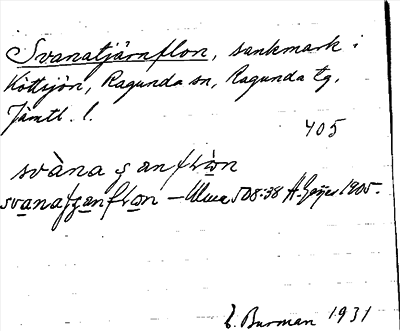 Svanatjärnflon, sankmark i
Köttsjön, Ragunda sn, Ragunda tg,
Jämtl. l.
405
svàna ȿ anflòn
svanatȿanflon – Ulma 508:38 A. Geijer 1905.
E. Burman 1931